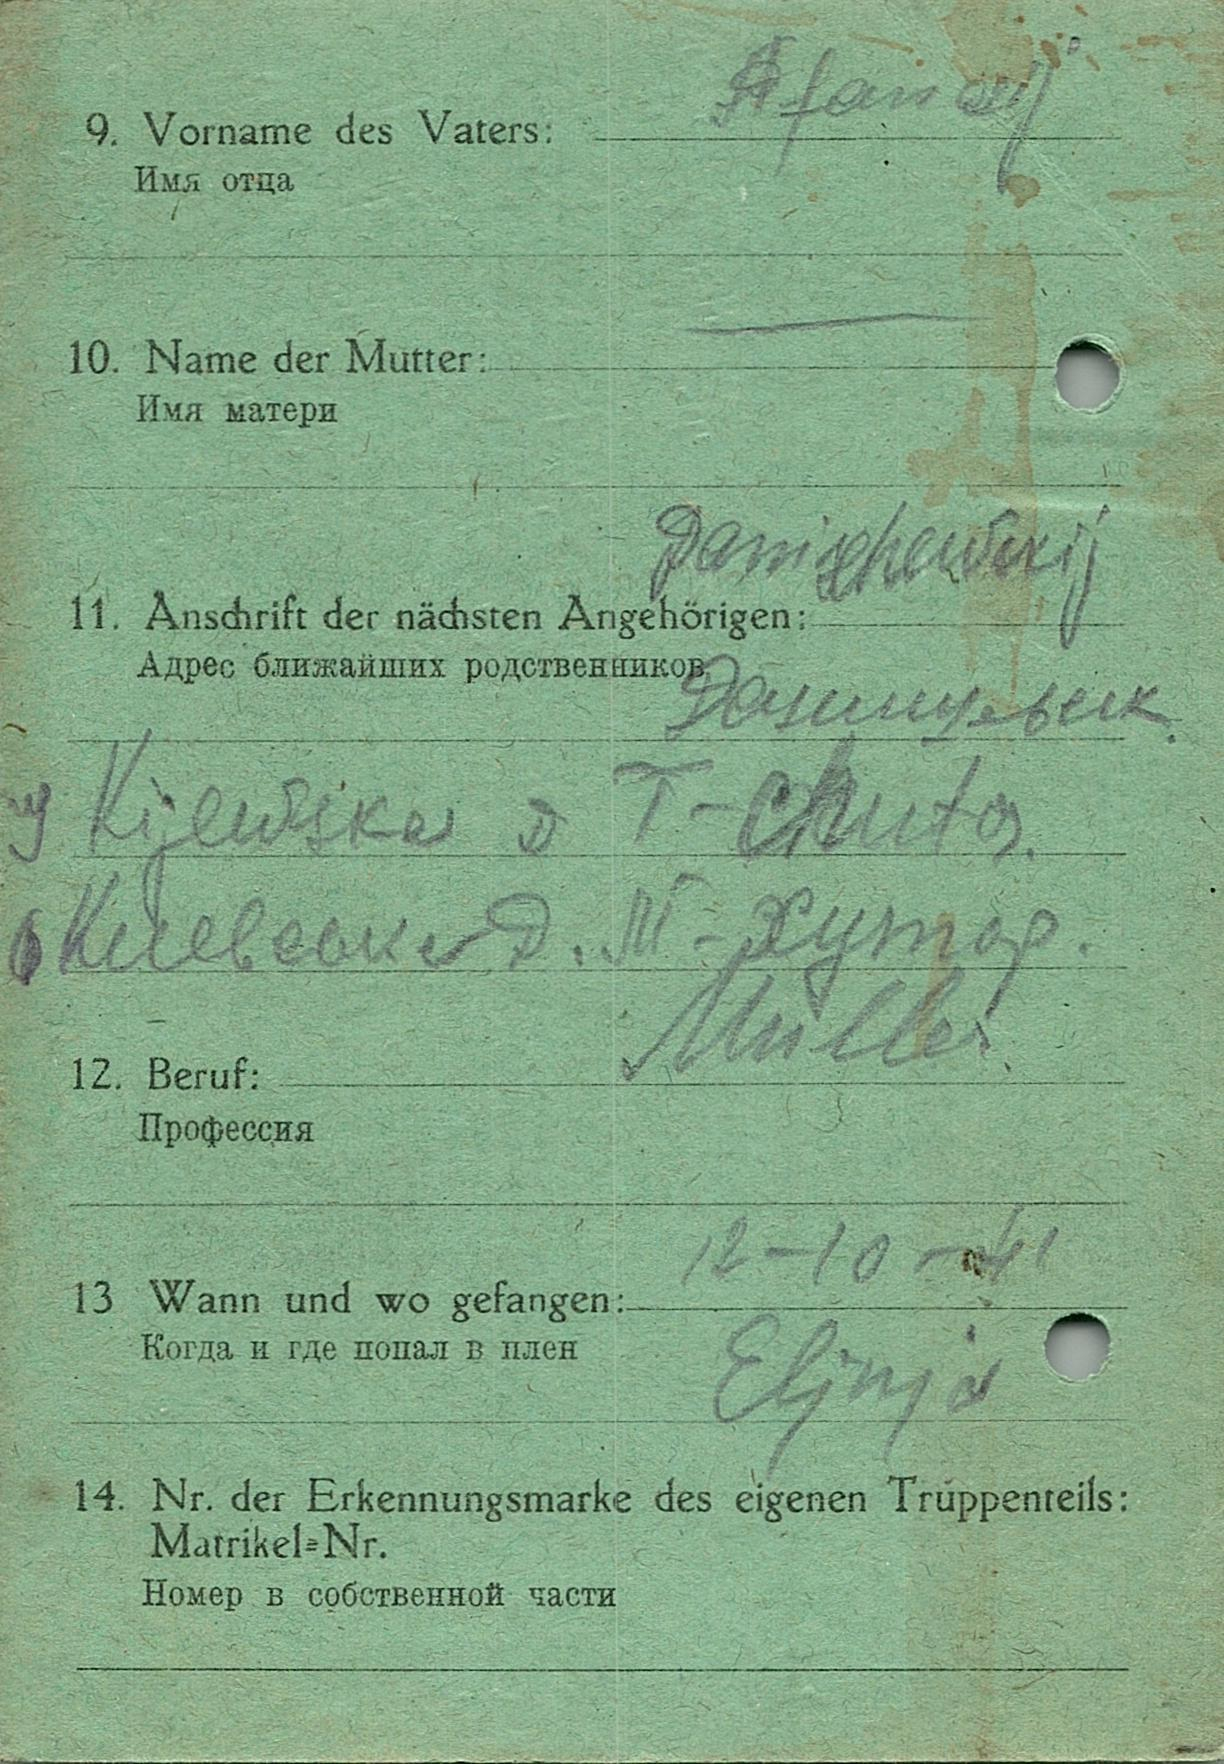 9. Vorname des Vaters: Afanasij
Имя отца
10. Name der Mutter: —
Имя матери
11. Anschrift der nächsten Angehörigen:
Адрес ближайших родственников
Kijewska D T-Chutor.
Киевська Д. Т-Хутор.
12. Beruf: Müller
Профессия
13 Wann und wo gefangen: 12-10-41
Когда и где попал в плен Eljnja
14. Nr. der Erkennungsmarke des eigenen Truppenteils:
Matrikel=Nr.
Номер в собственной части